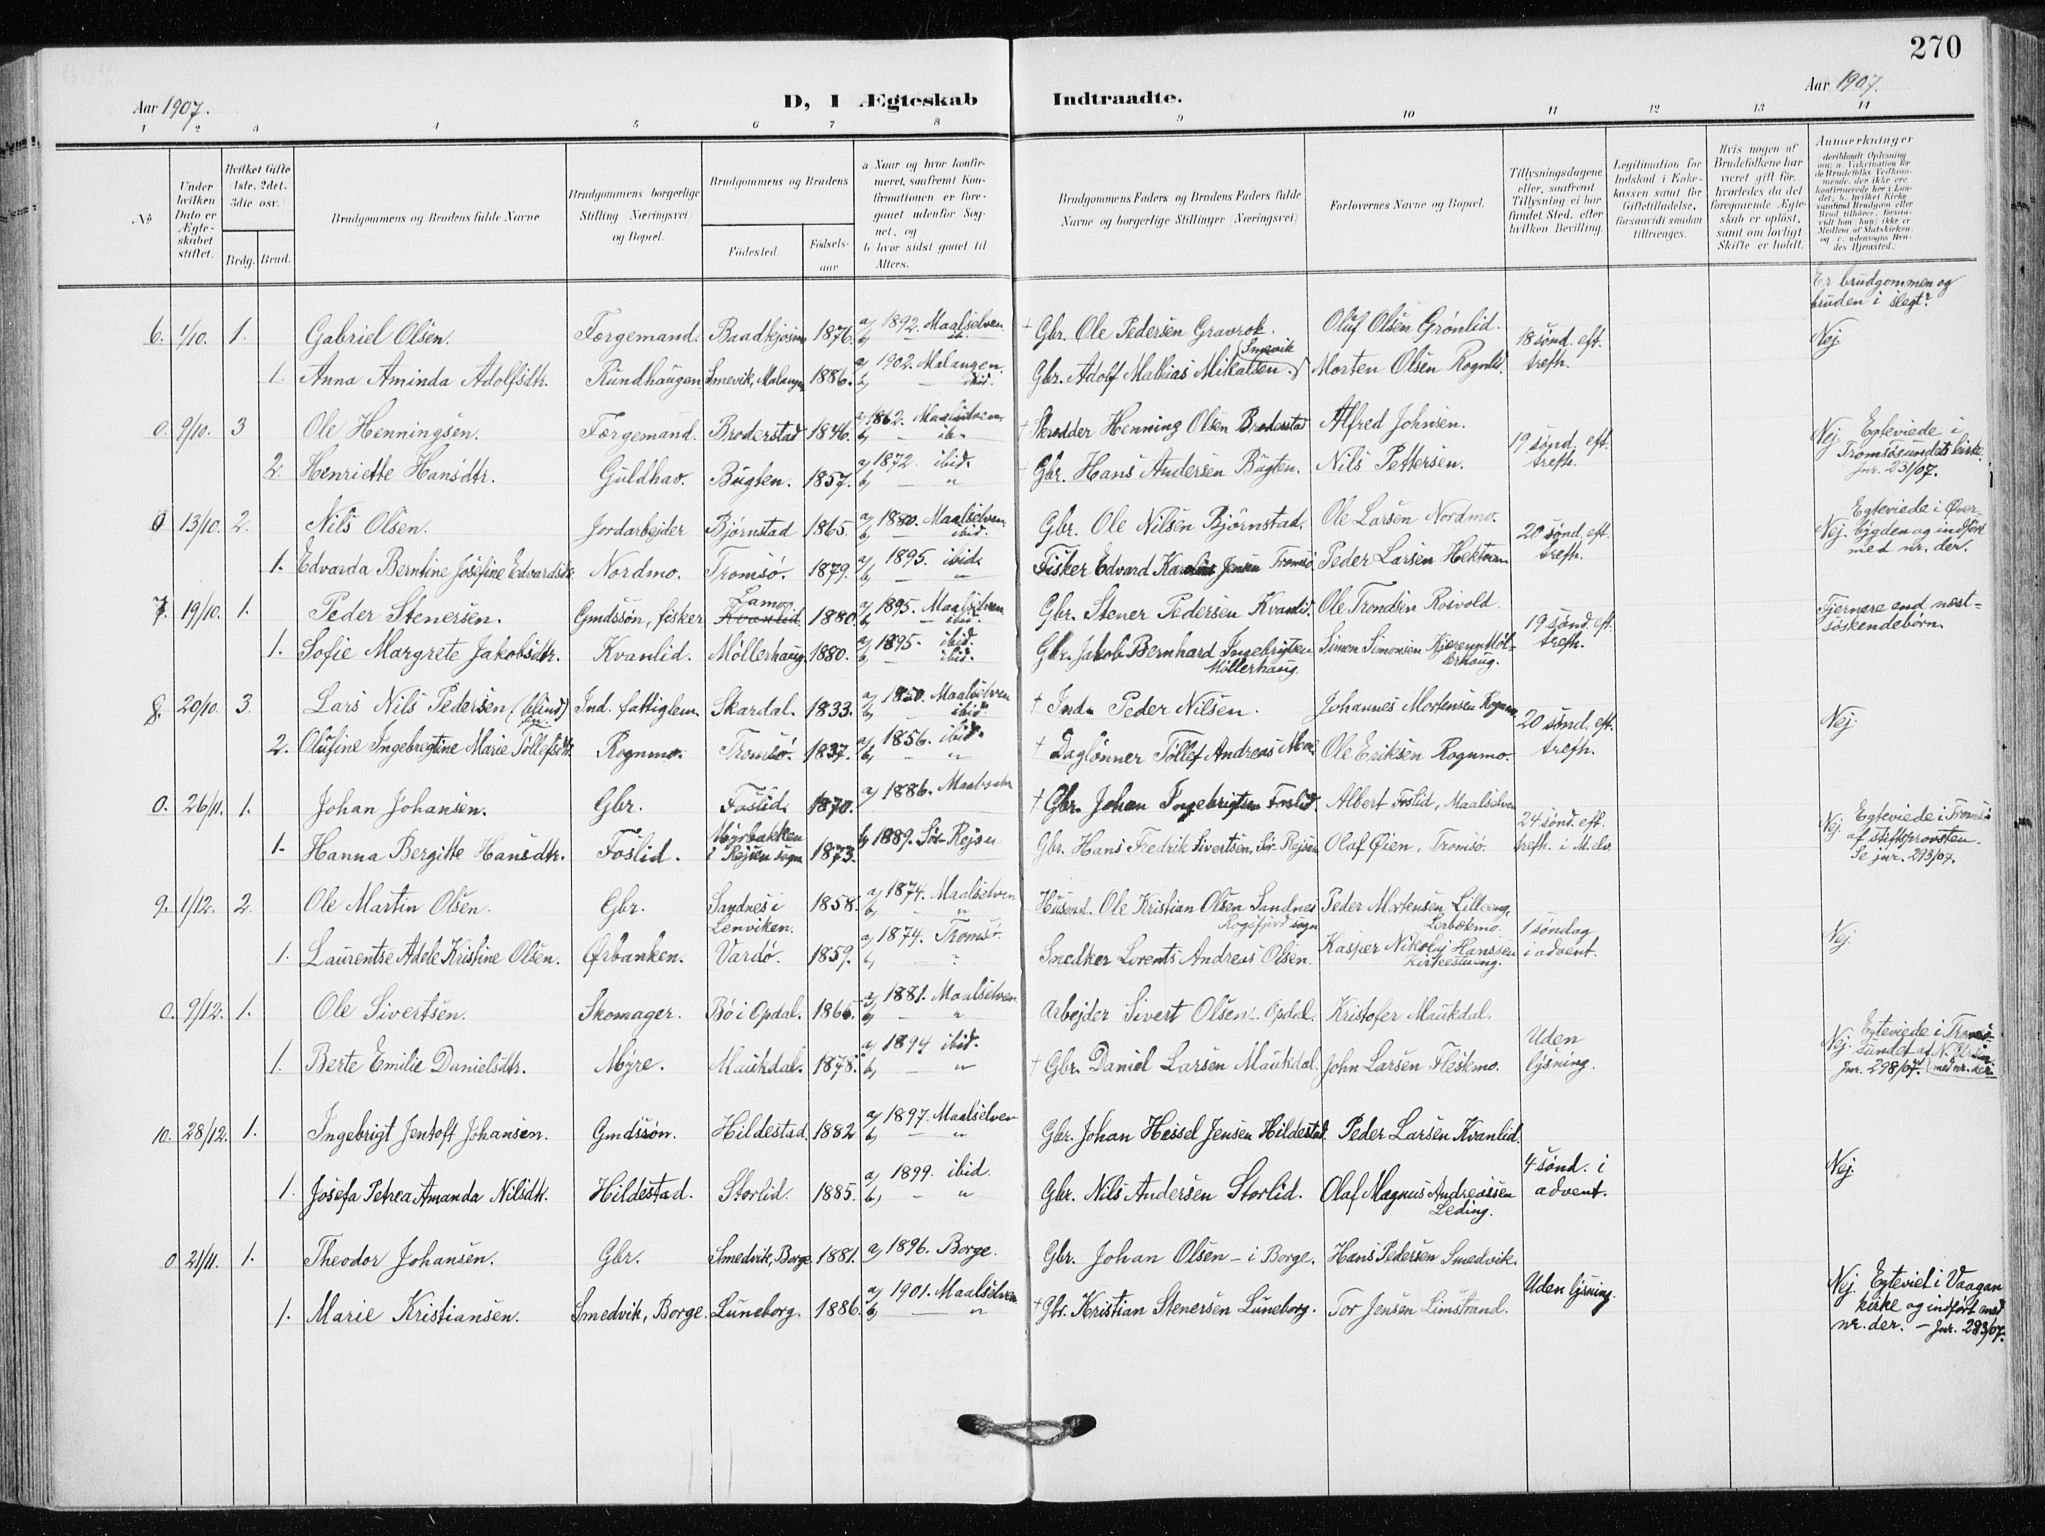 270
Aar 1907.
D, I Ægteskab Indtraadte.
Aar 1907.
1 2 3 4 5 6 7 8 9 10 11 12 13 14
No
Under hvilken Dato er Ægteskabet stiftet.
Hvilket Gifte 1ste. 2det. 3die osv.)
Brdg. Brud.
Brudgommens og Brudens fulde Navne
Brudgommens borgerlige Stilling (Næringsvei) og Bopæl.
Brudgommens og Brudens
Fødested.
Fødsels-aar.
a Naar og hvor konfirmeret, saafremt Konfirmationen er foregaaet udenfor Sognet, og
b hvor sidst gaaet til Alters.
Brudgommens Faders og Brudens Faders fulde Navne og borgerlige Stillinger (Næringsvei)
Forlovernes Navne og Bopæl.
Tillysningsdagene eller, saafremt Tillysning ei har fundet Sted, efter hvilken Bevilling.
Legitimation for Indskud i Enkekassen samt for Giftetilladelse, forsaavidt saadan tiltrænges.
Hvis nogen af Brudefolkene har været gift før, hvorledes da det foregaaende Ægteskab er opløst, samt om lovligt Skifte er holdt.
Anmærkninger
Er brudgommen og bruden i slegt?
6. 1/10. 1. Gabriel Olsen. Færgemand. 1876. a, 1892. Maalselven † Gbr. Ole Pedersen Gravrok. Oluf Olsen Grønlid. 18 sønd. eft. trefh. Nej
1. Anna Aminda Adolfsdtr. Rundhaugen Smevik, Malangen 1886. a, 1902. Malangen. b, — ibid. Gbr. Adolf Mathias Mikalsen. (Smevik) Morten Olsen
0. 9/10. 3 Ole Henningsen. Færgemand. Broderstad 1846. a, 1862. Maalselven b, — ib. † Skrædder Henning Olsen Broderstad Alfred Johnsen. 19 sønd. eft. trefh. Nej Egteviede i Tromsøsundets kirke. Jnr. 231/07.
2. Henriette Hansdtr. Guldhav. Bugten. 1857. a, 1872. ibid. b, — " † Gbr. Hans Andersen Bugten. Nils Pettersen.
0 13/10. 2. Nils Olsen. Jordarbejder Bjørnstad 1865. a, 1880. Maalselven b, — ibid. Gbr. Ole Nilsen Bjørnstad. Ole Larsen Nordmo. 20 sønd. eft. trefh. Nej. Egteviede i Øverbygden og indført med nr. der.
1. Edvarda Berntine Josefine Edvardsdtr. Nordmo. Tromsø. 1879. a, 1895. ibid. b, — " Fisker Edvard Jensen Tromsø Peder Larsen Hektoen
7. 19/10. 1. Peder Stenersen. Gmdssøn, fisker Kvanlid. 1880. a, 1895. Maalselven b, — ibid. Gbr. Stener Pedersen Kvanlid. Ole Trondsen Rosvold. 19 sønd. eft. trefh. Fjernere end næstsøskendebørn.
1. Sofie Margrete Jakobsdtr. Kvanlid. Møllerhaug. 1880. a, 1895. ibid. b, — ibid. Gbr. Jakob Bernhard Ingebrigtsen Møllerhaug. Simon Simonsen Møllerhaug.
8. 20/10. 3. Lars Nils Pedersen (blind) Ind. fattiglem. Skardal. 1833. a, 1850. Maalselven b, ibid. † Ind. Peder Nilsen. Johannes Mortensen Rognmo 20 sønd. eft. trefh. Nej.
2. Olufine Ingebregtine Marie Tollefsdtr. Rognmo. Tromsø. 1837. a, 1856. ibid. b, — " † Daglønner Tollef Andreas Moe. Ole Eriksen Rognmo.
0. 26/11. 1. Johan Johansen. Gbr. Foslid. 1870. a, 1886. Maalselven † Gbr. Johan Ingebrigtsen Foslid. Albert Foslid, Maalselven 24 sønd. eft. trefh. i M.elv. Nej. Egteviede i Tromsø af stiftsprovsten. Se jnr. 293/07.
1. Hanna Bergitte Hansdtr. Foslid. Myrbakken i Rejsen sogn 1873. b, 1889. Sør-Rejsen Gbr. Hans Fredrik Sivertsen, Sør-Rejsen Olaf Øien, Tromsø.
9. 1/12. 2. Ole Martin Olsen. Gbr. Sandnes i Lenviken. 1858. a, 1874. Maalselven b, — " Husmd. Ole Kristian Olsen Sandnes sogn Peder Mortensen Lilleeng, 1 søndag i advent. Nej.
1. Laurentse Adele Kristine Olsen. Ørbanken. Vardø. 1859. a, 1874. Tromsø. b, — " Lorents Andreas Olsen. Kasper Nikolaj Hanssen
0. 9/12. 1. Ole Sivertsen. Skomager. Bø i Opdal. 1865. a, 1881. Maalselven b, — " Arbejder Sivert Olsen – Opdal. Kristofer Maukdal. Uden lysning. Nej. Egteviede i Tromsøsundet af N. Jnr. 298/07. (med nr. der)
1. Berte Emilie Danielsdtr. Myre. Maukdal. 1878. a, 1894 ibid. b, — " † Gbr. Daniel Larsen Maukdal. John Larsen Fleskmo.
10. 28/12. 1. Ingebrigt Jentoft Johansen. Gmdssøn. Hildestad. 1882 a, 1897. Maalselven b, — " Gbr. Johan Hessel Jensen Hildestad. Peder Larsen Kvanlid. 4 sønd. i advent. Nej
1. Josefa Petrea Amanda Nilsdtr. Hildestad. Storlid. 1885. a, 1899. ibid. b, — " Gbr. Nils Andersen Storlid. Olaf Magnus Andreassen Leding.
0 21/11. 1. Theodor Johansen. Gbr. Smedvik, Borge 1881. a, 1896. Borge. Gbr. Johan Olsen – i Borge. Hans Pedersen Smedvik. Uden lysning. Nej. Egteviet i Vaagan kirke og indført med nr. der. – Jnr. 283/07.
1. Marie Kristiansen. Smedvik, Borge. Luneborg. 1886. a, 1901. Maalselven b, — " † Gbr. Kristian Stenersen Luneborg. Tor Jensen Limstrand.